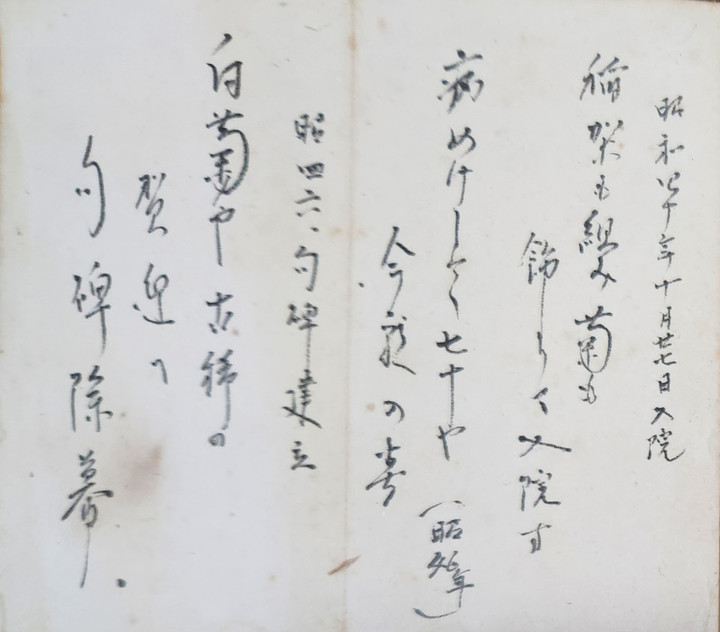 昭和四十三年十月廿七日入院
稲架も組み菊も
飾りて入院す
病 七十や
今朝の春
(昭46年)
昭四六、句碑建立
白菊や古稀の
賀迎へ
句碑除幕。